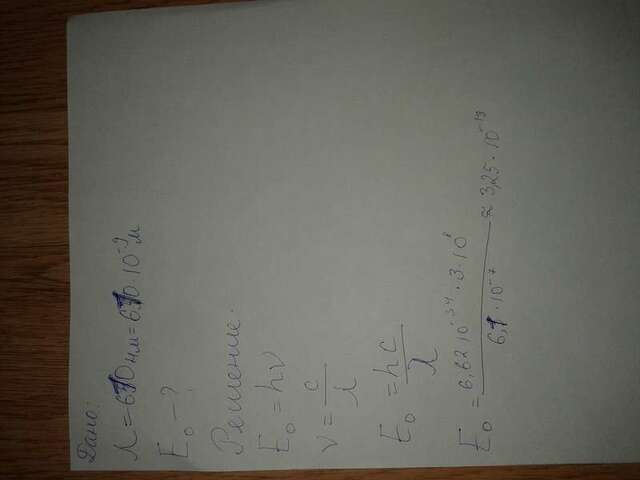 Дано:
λ = 610 нм = 610 · 10⁻⁹ м
E₀ – ?
Решение.
E₀ = hν
ν = c/λ
E₀ = hc/λ
E₀ = 6,62 · 10⁻³⁴ · 3 · 10⁸ / 6,1 · 10⁻⁷ ≈ 3,25 · 10⁻¹⁹